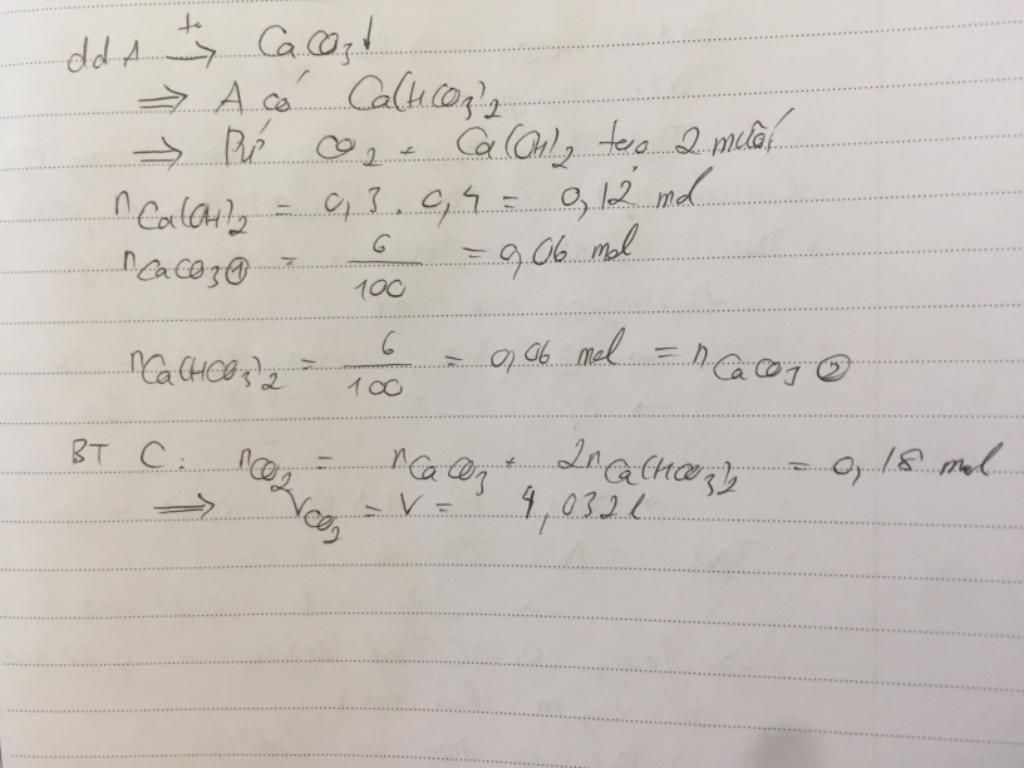 dd A t° → CaCO3↓
⇒ A có Ca(HCO3)2
⇒ Pứ CO2 + Ca(OH)2 tạo 2 muối
nCa(OH)2 = 0,3 . 0,4 = 0,12 mol
nCaCO3① = 6/100 = 0,06 mol
nCa(HCO3)2 = 6/100 = 0,06 mol = nCaCO3②
BT C: nCO2 = nCaCO3 + 2nCa(HCO3)2 = 0,18 mol
⇒ VCO2 = V = 4,032l